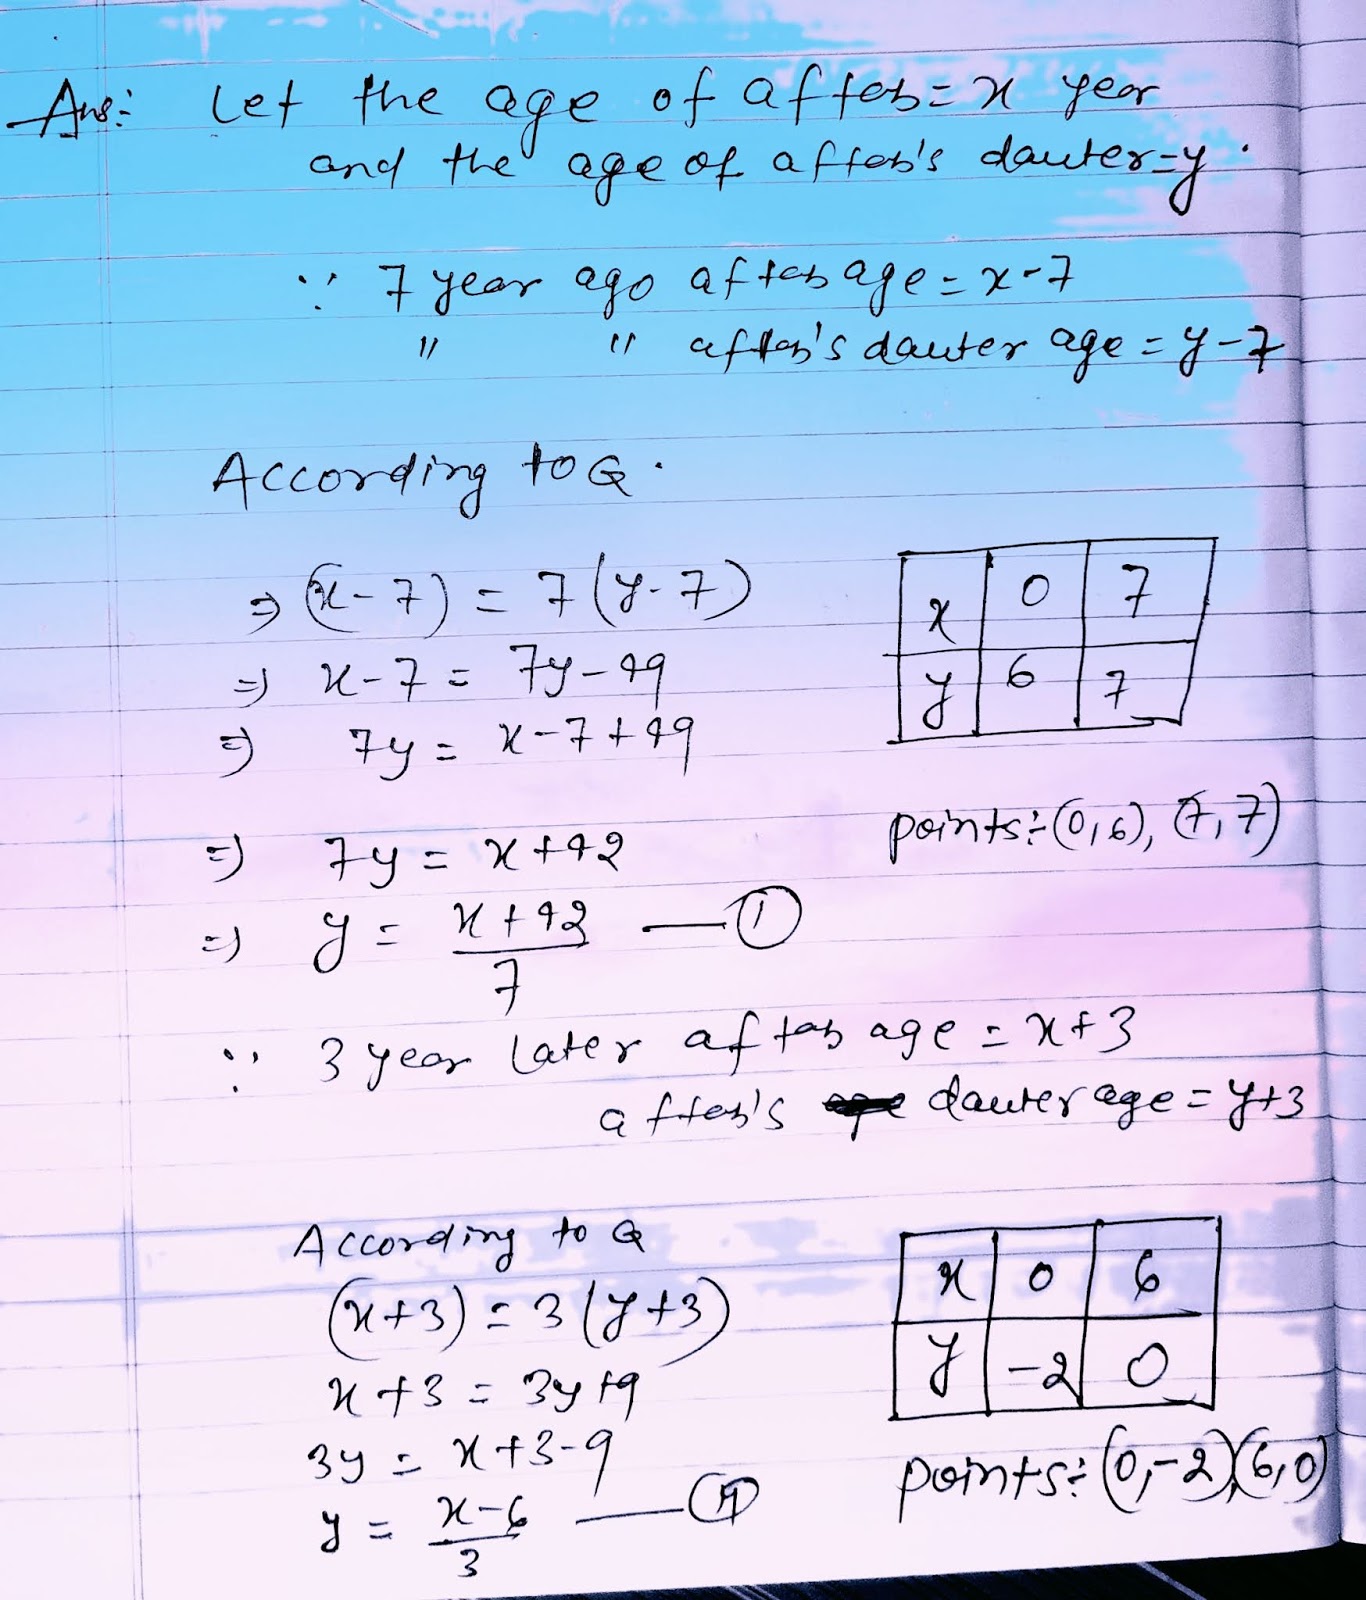 Ans:- Let the age of aftab = x year
and the age of aftab's dauter = y.
∵ 7 year ago aftab age = x-7
" " aftab's dauter age = y-7
According to Q.
⇒ (x-7) = 7(y-7)
⇒ x-7 = 7y-49
⇒ 7y = x-7+49
x 0 7
y 6 7
points:- (0,6), (7,7)
⇒ 7y = x+42
⇒ y = x+42 / 7 — ①
∵ 3 year later aftab age = x+3
aftab's dauter age = y+3
According to Q
(x+3) = 3(y+3)
x+3 = 3y+9
3y = x+3-9
y = x-6 / 3
x 0 6
y -2 0
points:- (0,-2)(6,0)